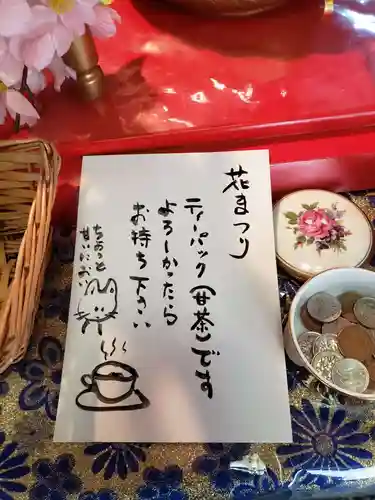 花まつり
ティーパック(甘茶)です
よろしかったら
お持ち下さい
ちょっと
甘いにおい